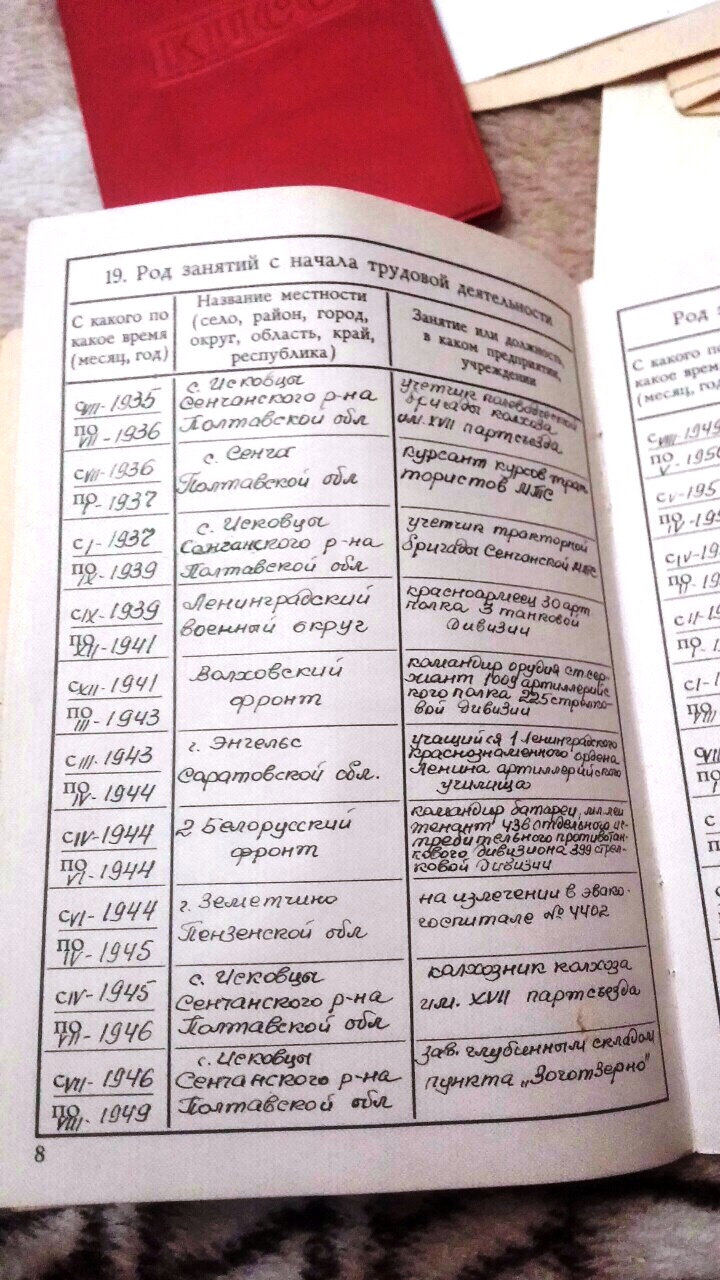 КПСС
19. Род занятий с начала трудовой деятельности
С какого по
какое время
(месяц, год)
Название местности
(село, район, город,
округ, область, край,
республика)
Занятие или должность,
в каком предприятии,
учреждении
с VII-1935
по VII-1936
с. Исковцы
Сенчанского р-на
Полтавской обл
учетчик полеводческой
бригады колхоза
им. XVII партсъезда
с VII-1936
по I-1937
с. Сенча
Полтавской обл
курсант курсов трак
тористов МТС
с I-1937
по IX-1939
с. Исковцы
Сенчанского р-на
Полтавской обл
учетчик тракторной
бригады Сенчанской МТС
с IX-1939
по XII-1941
Ленинградский
военный округ
красноармеец 30 арт
полка 3 танковой
дивизии
с XII-1941
по III-1943
Волховский
фронт
командир орудия ст. сер-
жант 1009 артиллерийс
кого полка 225 стрелко-
вой дивизии
с III-1943
по IV-1944
г. Энгельс
Саратовской обл.
учащийся 1 Ленинградского
Краснознаменного ордена
Ленина артиллерийского
училища
с IV-1944
по VI-1944
2 Белорусский
фронт
командир батареи, мл. лей
тенант 438 отдельного ис-
требительного противотан-
кового дивизиона 399 стрел-
ковой дивизии
с VI-1944
по IV-1945
г. Земетчино
Пензенской обл
на излечении в эвако-
госпитале № 4402
с IV-1945
по VII-1946
с. Исковцы
Сенчанского р-на
Полтавской обл
колхозник колхоза
им. XVII партсъезда
с VII-1946
по VIII-1949
с. Исковцы
Сенчанского р-на
Полтавской обл
зав. глубинным складом
пункта „Заготзерно"
8
Род
С какого по
какое время
(месяц, год)
с VIII-1949
по V-1950